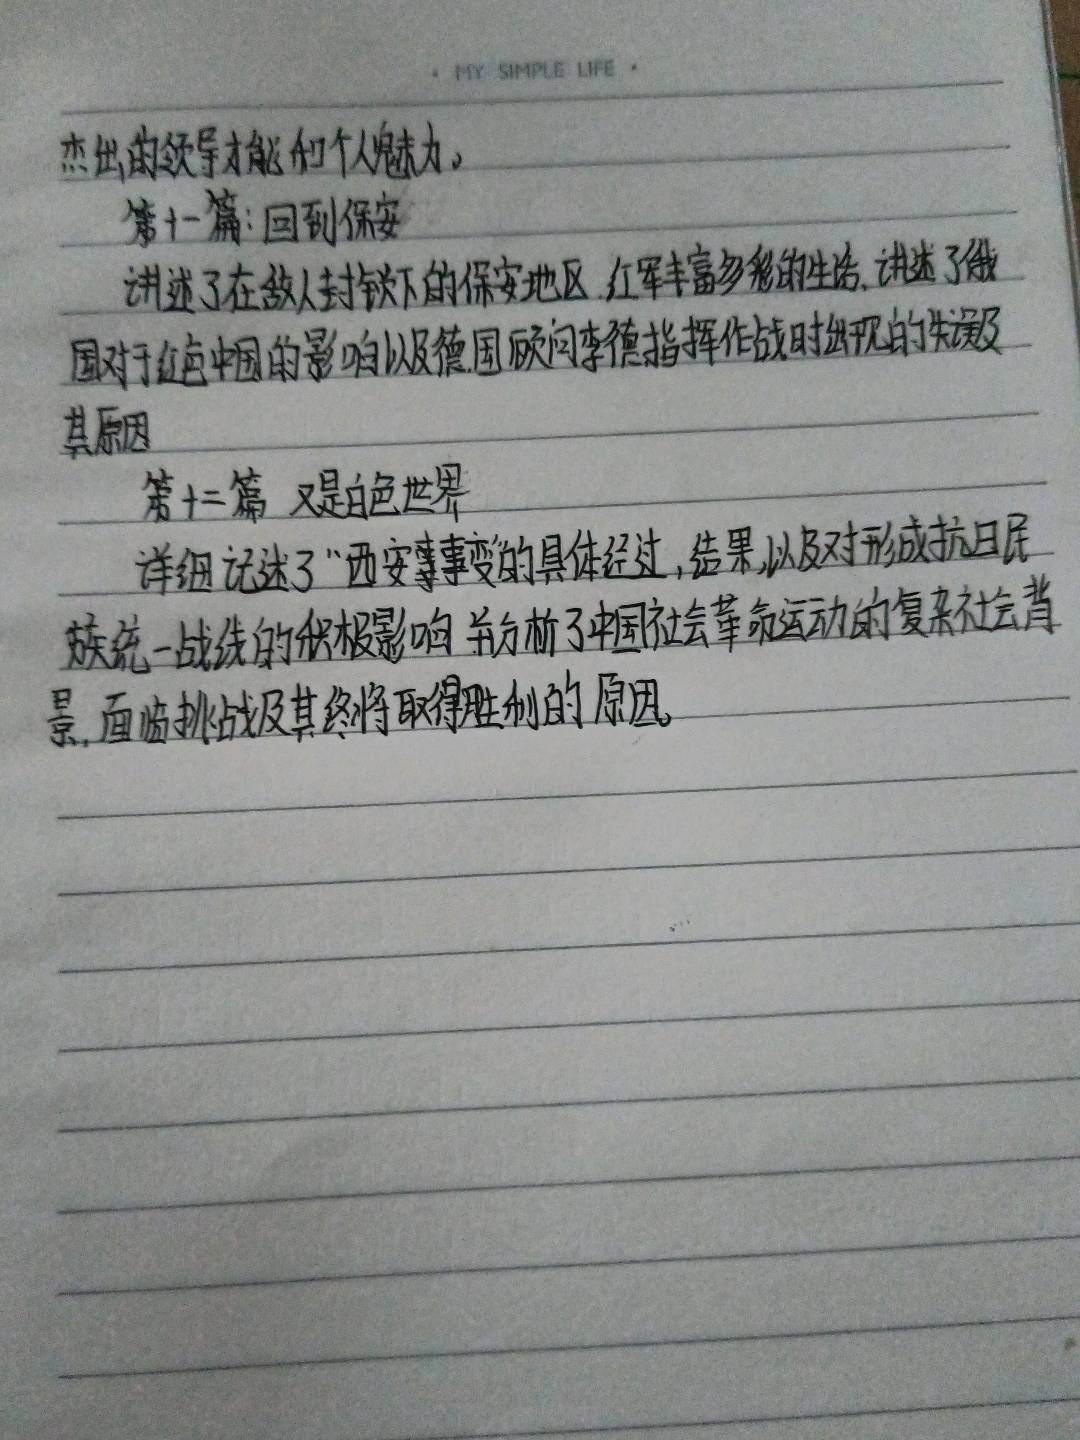 · MY SIMPLE LIFE ·
杰出的领导才能和个人魅力。
第十一篇：回到保安
讲述了在敌人封锁下的保安地区.红军丰富多彩的生活、讲述了俄
国对于红色中国的影响以及德国顾问李德指挥作战时出现的失误及
其原因
第十二篇 又是白色世界
详细记述了“西安事事变”的具体经过，结果,以及对形成抗日民
族统一战线的积极影响并分析了中国社会革命运动的复杂社会背
景,面临挑战及其终将取得胜利的原因。